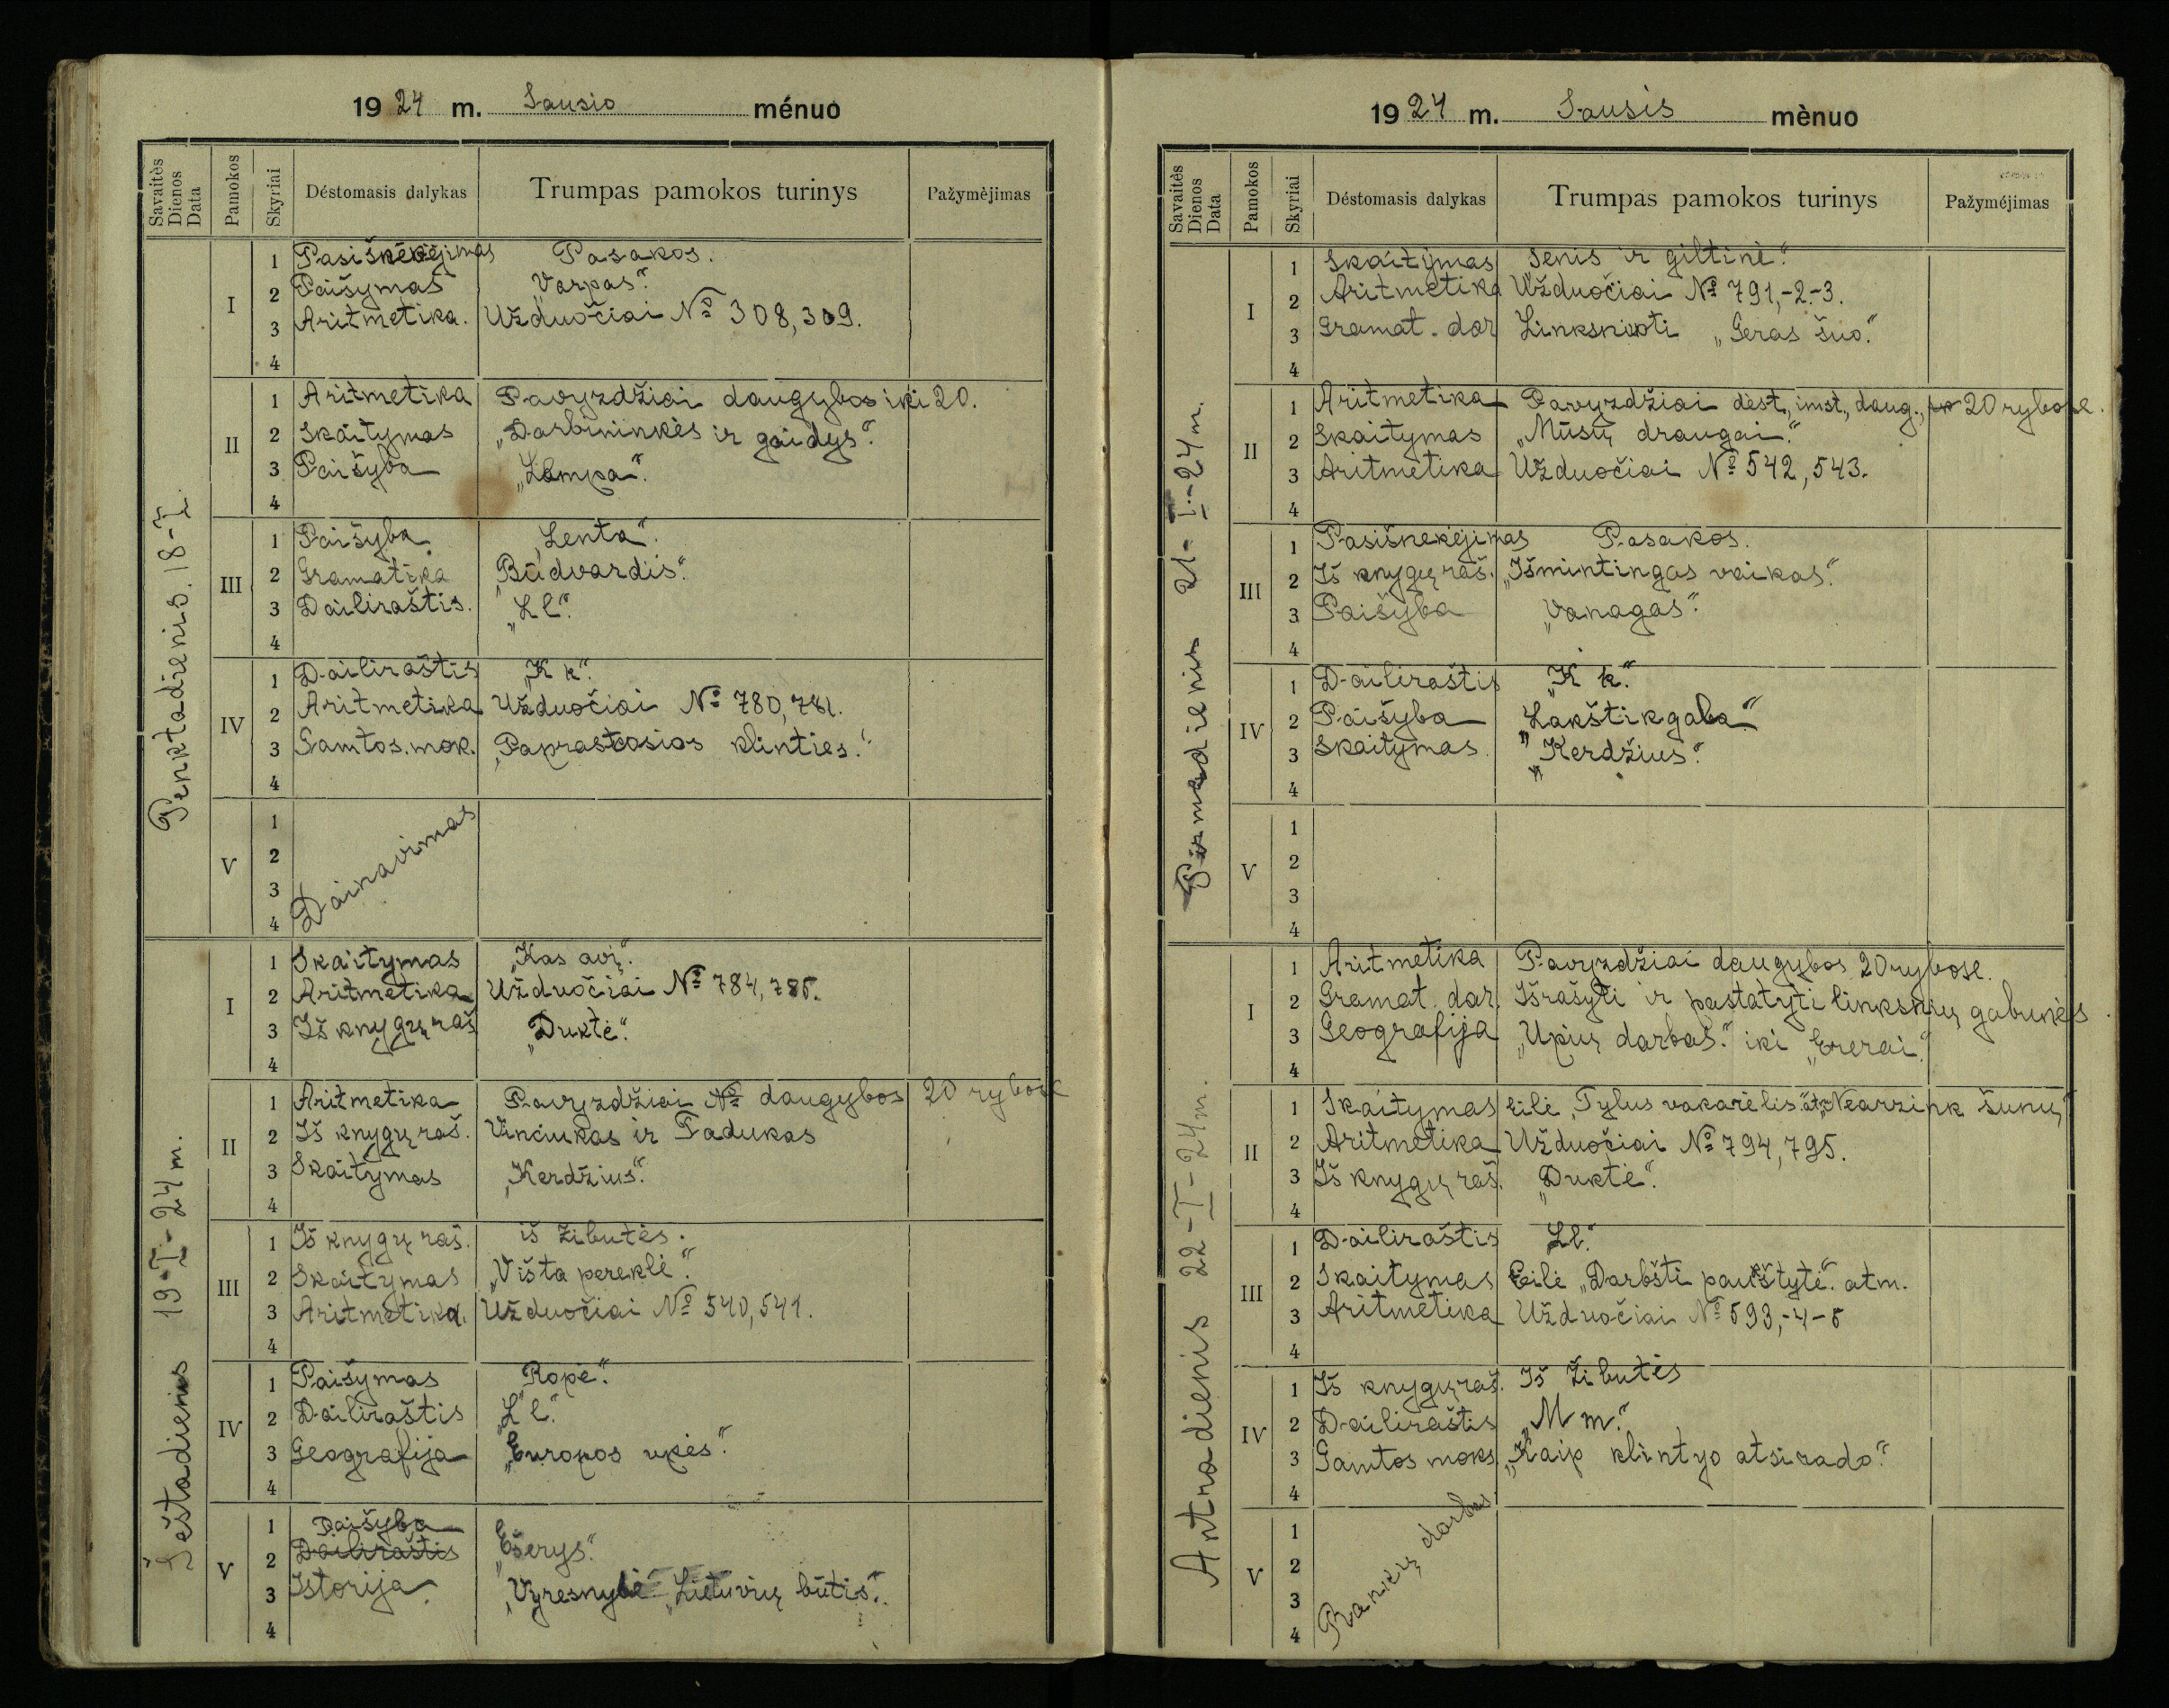 1924 m. Sausio ménuo
Savaitès Dienos Data Pamokos Skyriai Déstomasis dalykas Trumpas pamokos turinys Pažymėjimas
Penktadienis. 18-I.
I
1 Pasišnekėjimas Pasakos.
2 Paišymas „Varpas“.
3 Aritmetika. Užduočiai № 308, 309.
4
II
1 Aritmetika Pavyzdžiai daugybos iki 20.
2 Skaitymas „Darbininkės ir gaidys“.
3 Paišyba „Lampa“.
4
III
1 Paišyba „Lenta“.
2 Gramatika „Būdvardis“.
3 Dailiraštis. „L l“.
4
IV
1 Dailiraštis „K k“.
2 Aritmetika Užduočiai № 780, 781.
3 Gamtos. mok. „Paprastosios klinties.“
4
V
1
2
3
4
Dainavimas
Šeštadienius 19-I-24 m.
I
1 Skaitymas „Kas avi“.
2 Aritmetika Uždvočiai № 784, 785.
3 Iš knygų raš „Duktė“.
4
II
1 Aritmetika Pavyzdžiai № daugybos 20 rybose
2 Iš knygų raš. Vinciukas ir Tadukas
3 Skaitymas „Kerdžius“.
4
III
1 Iš knygų raš. iš Žibutės.
2 Skaitymas „Višta pereklė“.
3 Aritmetika. Uždvočiai № 540, 541.
4
IV
1 Paišymas „Ropė“.
2 Dailiraštis „L l“.
3 Geografija „Europos upės“.
4
V
1 Paišyba
2 Dailiraštis „Ešerys“.
3 Istorija „Vyresnybė“ „Lietuvių būtis“.
4
1924 m. Sausis mènuo
Savaitès Dienos Data Pamokos Skyriai Déstomasis dalykas Trumpas pamokos turinys Pažyméjimas
Pirmadienis 21-I-24 m.
I
1 Skaitymas „Senis ir giltinė“.
2 Aritmetika Uždvočiai № 791,-2.-3.
3 Gramat. dar Linksniuoti „Geras šuo“.
4
II
1 Aritmetika Pavyzdžiai dėst., imst., daug., 20 rybose.
2 Skaitymas „Mūsų draugai“.
3 Aritmetika Uždvočiai № 542, 543.
4
III
1 Pasišnekėjimas Pasakos.
2 Iš knygų raš. „Išmintingas vaikas“.
3 Paišyba „Vanagas“.
4
IV
1 Dailiraštis „K k“.
2 Paišyba „Lakštikgala“
3 Skaitymas. „Kerdžius“.
4
V
1
2
3
4
Antradienis 22-I-24 m.
I
1 Aritmetika Pavyzdžiai daugybos 20 rybose.
2 Gramat. dar. Išrašyti ir pastatyti linksnių galunės.
3 Geografija „Upių darbas“. iki „Ererai“.
4
II
1 Skaitymas Eilė „Tylus vakarėlis“. „Nearzink šunų“
2 Aritmetika Uždvočiai № 794, 795.
3 Iš knygų raš. „Duktė“.
4
III
1 Dailiraštis Ll“.
2 Skaitymas Eilė „Darbšti paukštytė“. atm.
3 Aritmetika Uždvočiai № 593,-4-5
4
IV
1 Iš knygų raš. Iš Žibutės
2 Dailiraštis „M m“.
3 Gamtos moks. „Kaip klintyo atsirado“.
4
V
1
2
3
4
Rankų darbas